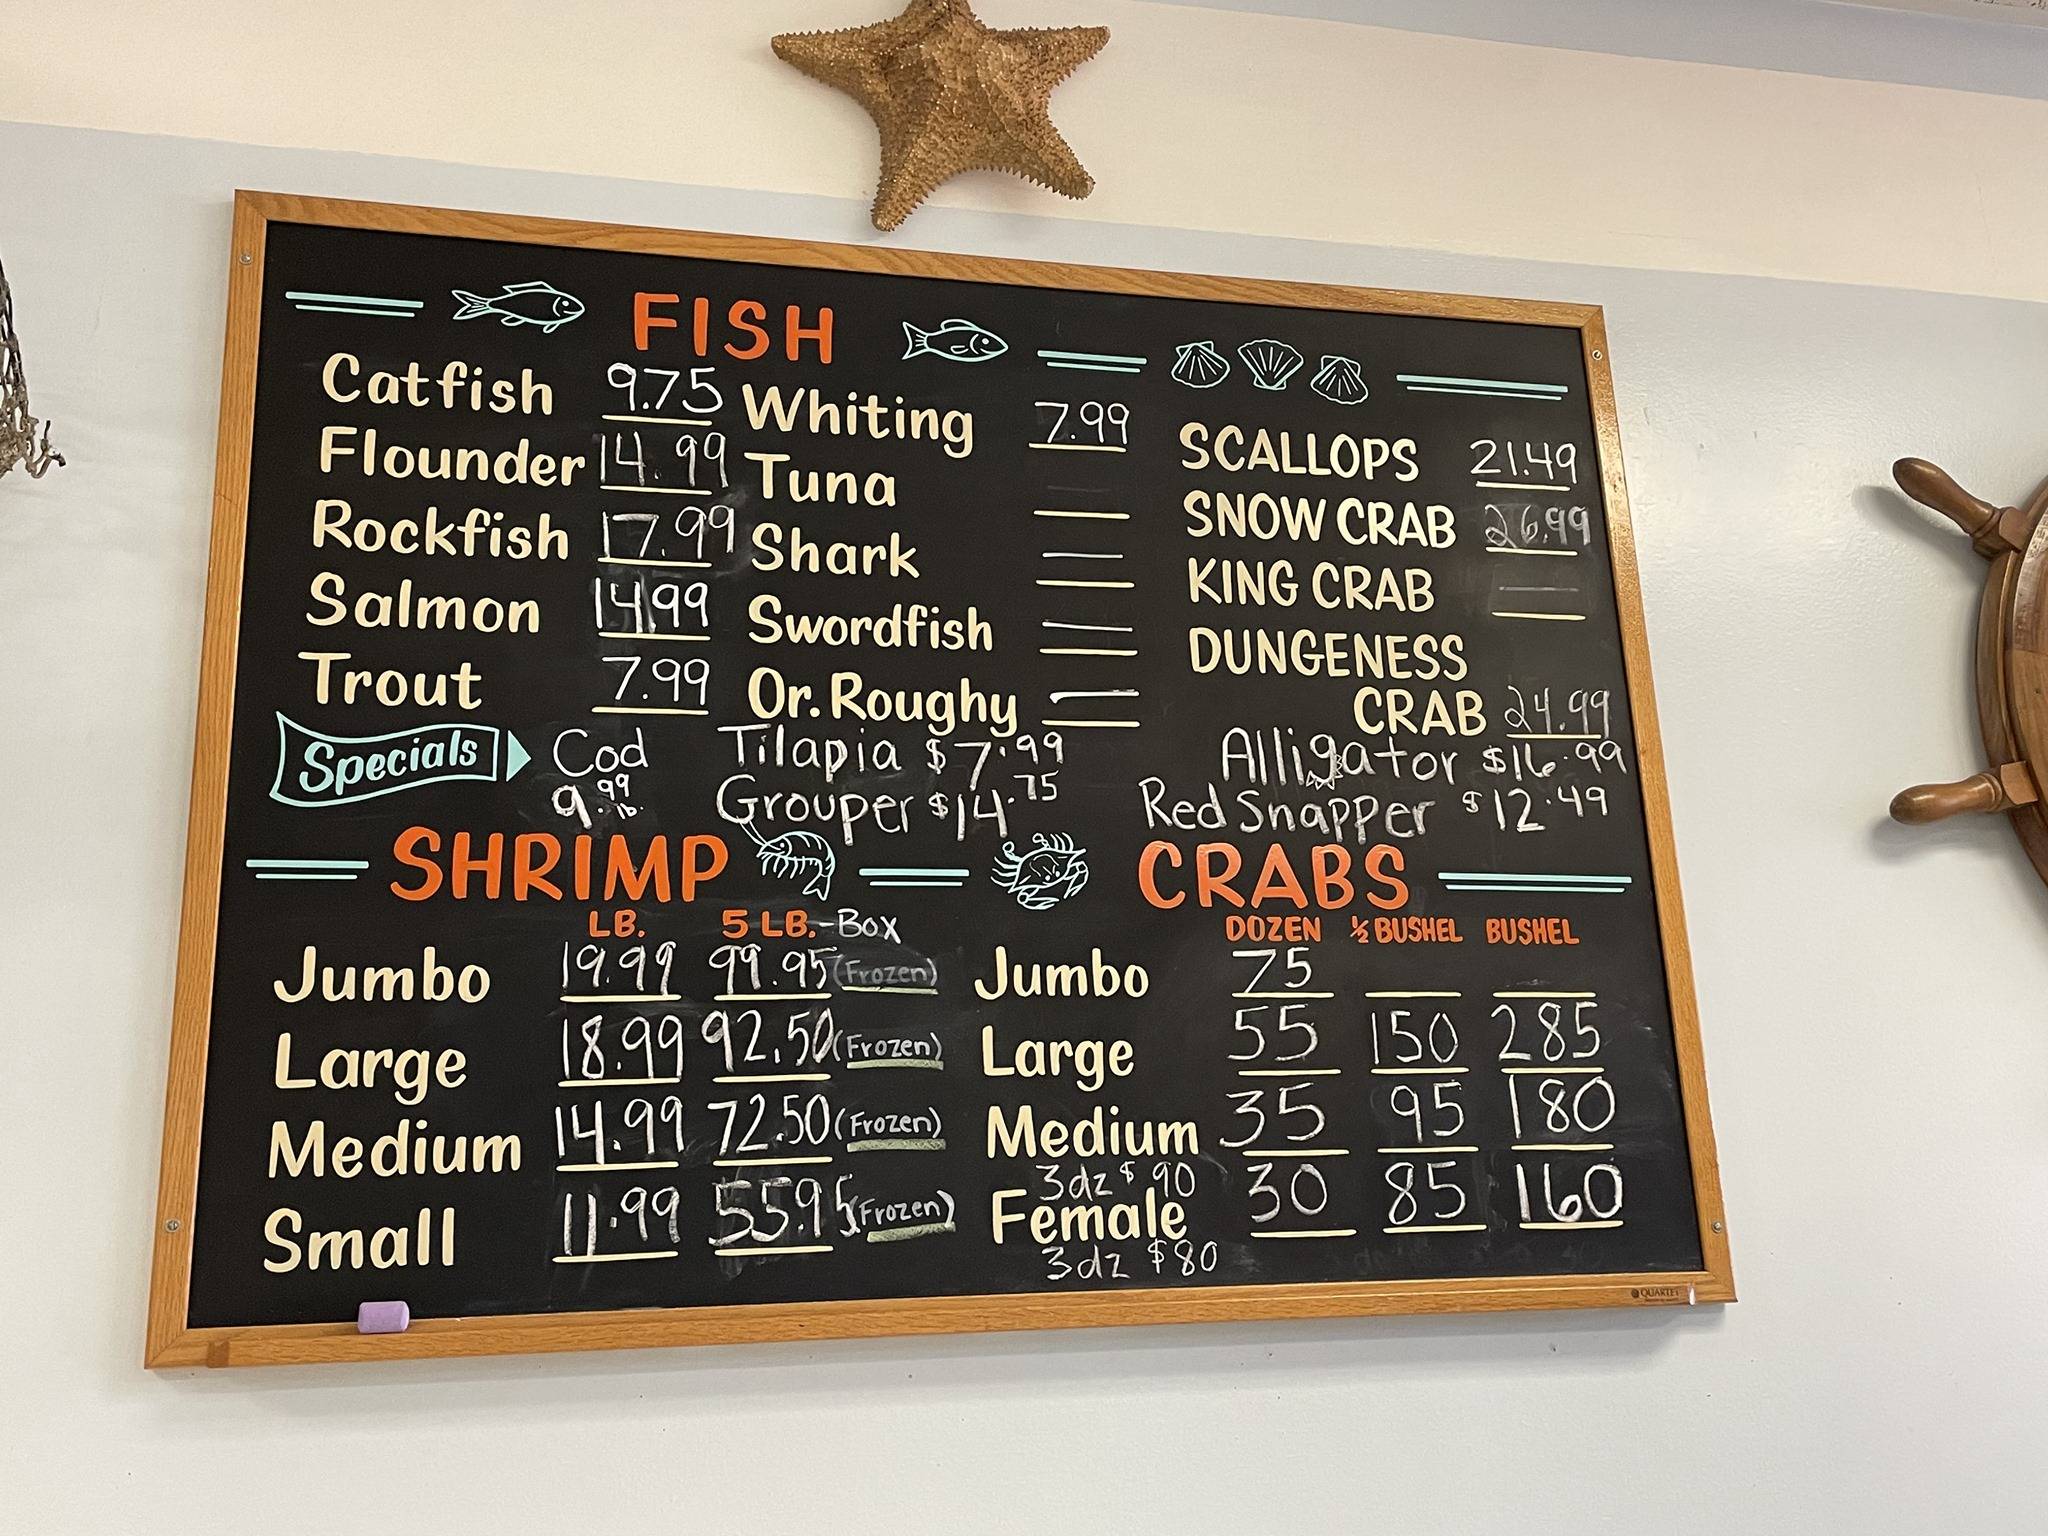 FISH
Catfish 9.75
Flounder 14.99
Rockfish 17.99
Salmon 14.99
Trout 7.99
Whiting 7.99
Tuna
Shark
Swordfish
Or. Roughy
SCALLOPS 21.49
SNOW CRAB 26.99
KING CRAB
DUNGENESS
CRAB 24.99
Specials
Cod
9.99 lb.
Tilapia $7.99
Grouper $14.75
Alligator $16.99
Red Snapper $12.49
SHRIMP
LB. 5 LB.-Box
Jumbo 19.99 99.95 (Frozen)
Large 18.99 92.50 (Frozen)
Medium 14.99 72.50 (Frozen)
Small 11.99 55.95 (Frozen)
CRABS
DOZEN ½ BUSHEL BUSHEL
Jumbo 75
Large 55 150 285
Medium 35 95 180
3dz $90
Female 30 85 160
3dz $80
QUARTET